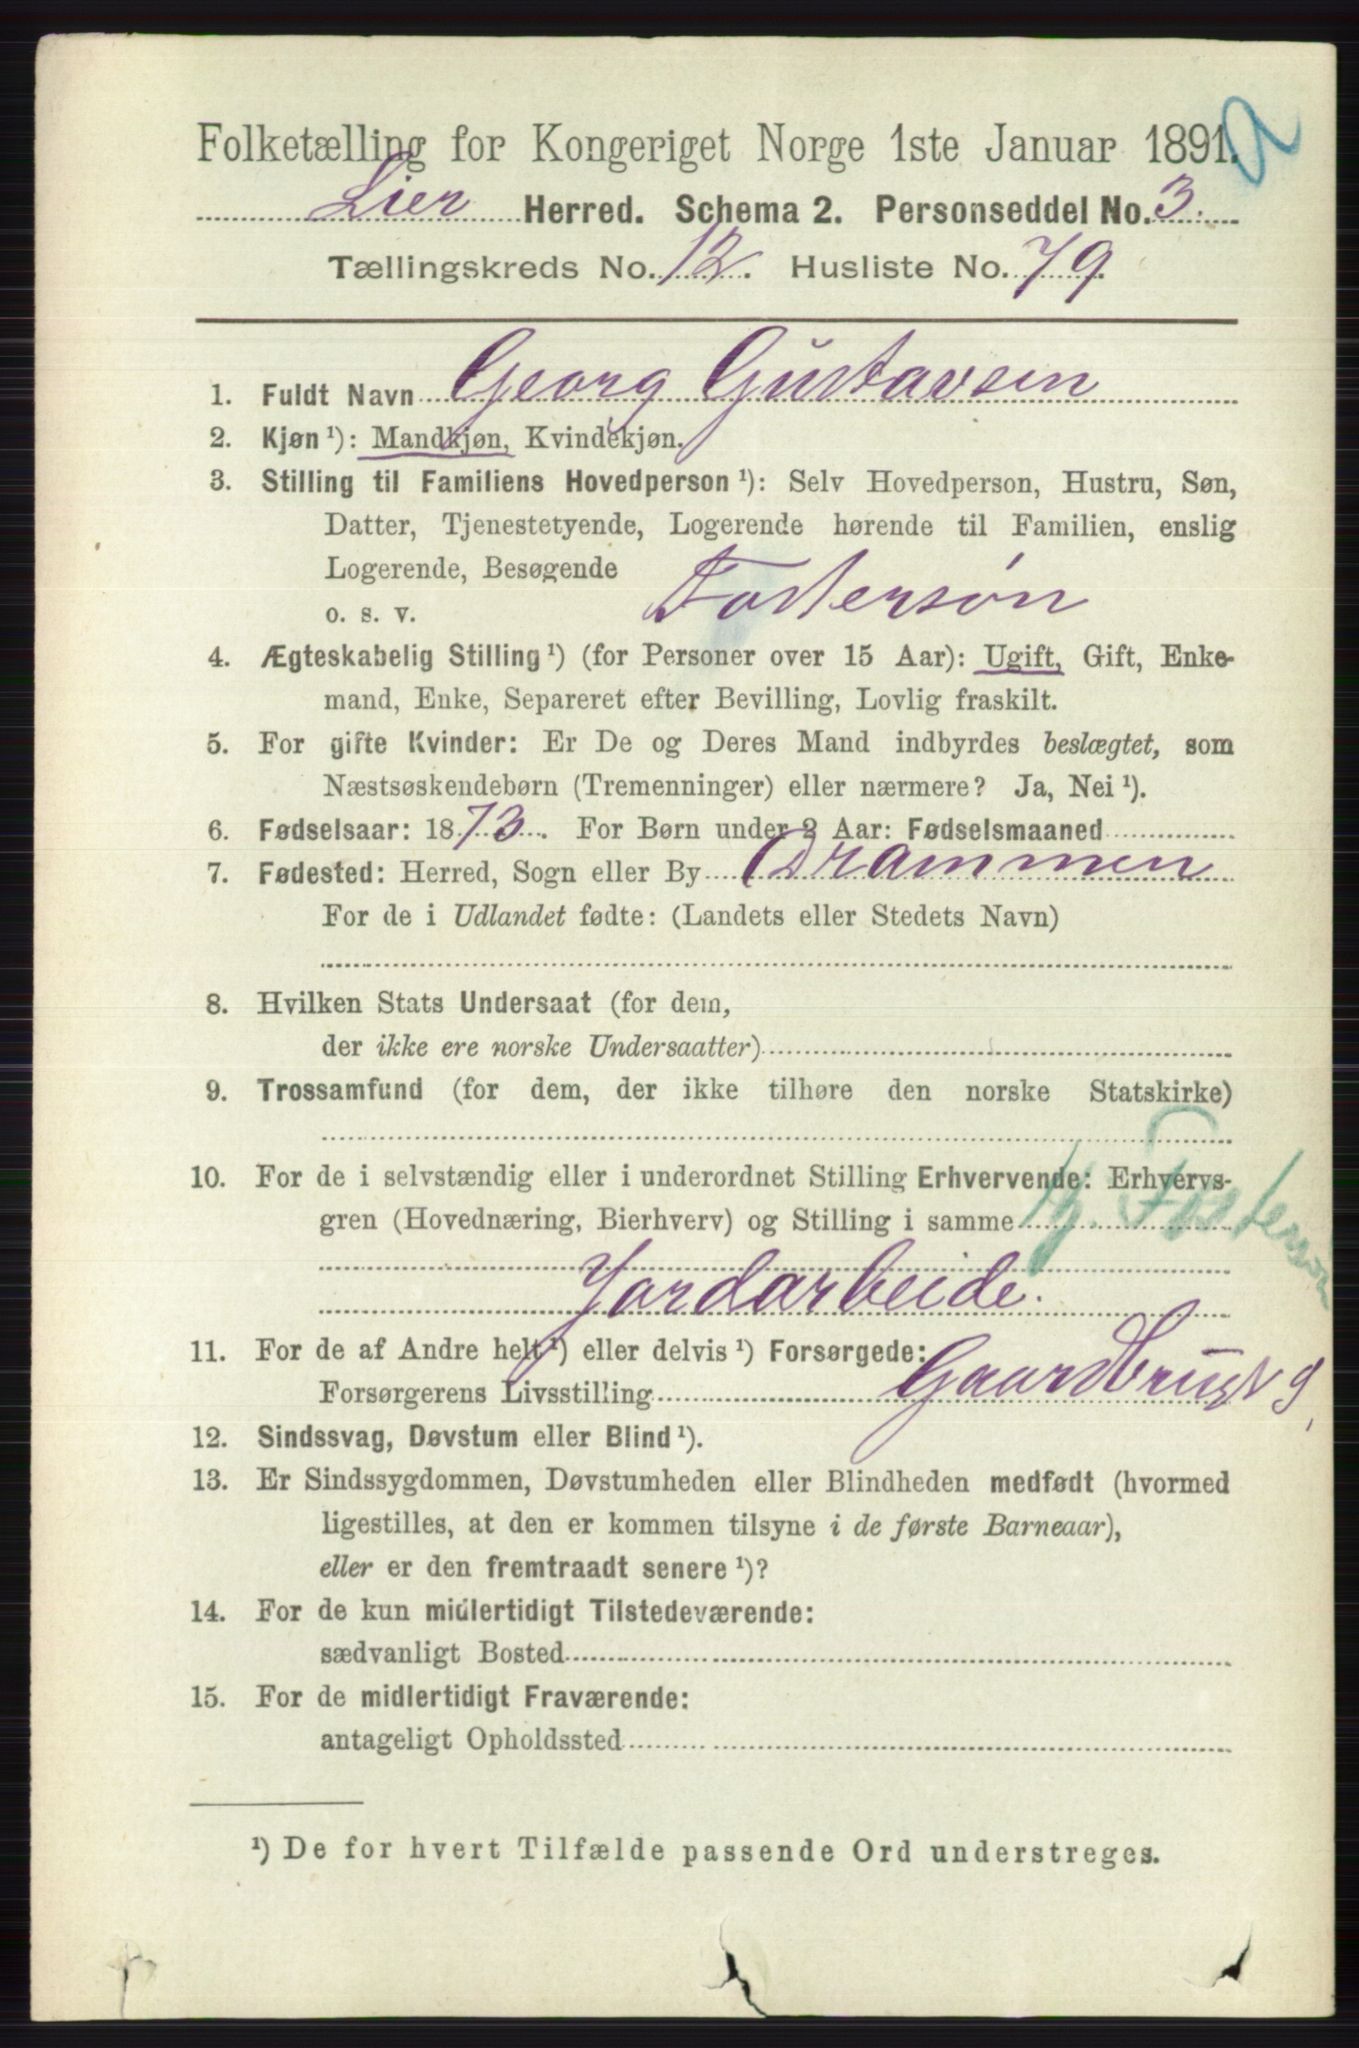 Folketælling for Kongeriget Norge 1ste Januar 1891.
Lier Herred. Schema 2. Personseddel No. 3.
Tællingskreds No. 12. Husliste No. 79.
1. Fuldt Navn Georg Gustavsen
2. Kjøn ¹): Mandkjøn, Kvindekjøn.
3. Stilling til Familiens Hovedperson ¹): Selv Hovedperson, Hustru, Søn,
Datter, Tjenestetyende, Logerende hørende til Familien, enslig
Logerende, Besøgende
o. s. v. Fostersøn
4. Ægteskabelig Stilling ¹) (for Personer over 15 Aar): Ugift, Gift, Enke-
mand, Enke, Separeret efter Bevilling, Lovlig fraskilt.
5. For gifte Kvinder: Er De og Deres Mand indbyrdes beslægtet, som
Næstsøskendebørn (Tremenninger) eller nærmere? Ja, Nei ¹).
6. Fødselsaar: 1873. For Børn under 2 Aar: Fødselsmaaned
7. Fødested: Herred, Sogn eller By Drammen
For de i Udlandet fødte: (Landets eller Stedets Navn)
8. Hvilken Stats Undersaat (for dem,
der ikke ere norske Undersaatter)
9. Trossamfund (for dem, der ikke tilhøre den norske Statskirke)
10. For de i selvstændig eller i underordnet Stilling Erhvervende: Erhvervs-
gren (Hovednæring, Bierhverv) og Stilling i samme g. Fostersøn
Jordarbeide.
11. For de af Andre helt ¹) eller delvis ¹) Forsørgede:
Forsørgerens Livsstilling Gaardbrug
12. Sindssvag, Døvstum eller Blind ¹).
13. Er Sindssygdommen, Døvstumheden eller Blindheden medfødt (hvormed
ligestilles, at den er kommen tilsyne i de første Barneaar),
eller er den fremtraadt senere ¹)?
14. For de kun midlertidigt Tilstedeværende:
sædvanligt Bosted
15. For de midlertidigt Fraværende:
antageligt Opholdssted
¹) De for hvert Tilfælde passende Ord understreges.